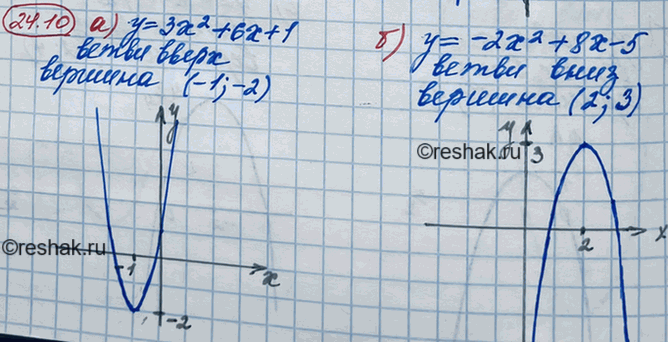 24.10 а) y = 3x² + 6x + 1
ветви вверх
вершина (-1; -2)
б) y = -2x² + 8x - 5
ветви вниз
вершина (2; 3)
y
-1
x
-2
©reshak.ru
y
3
2
x
©reshak.ru